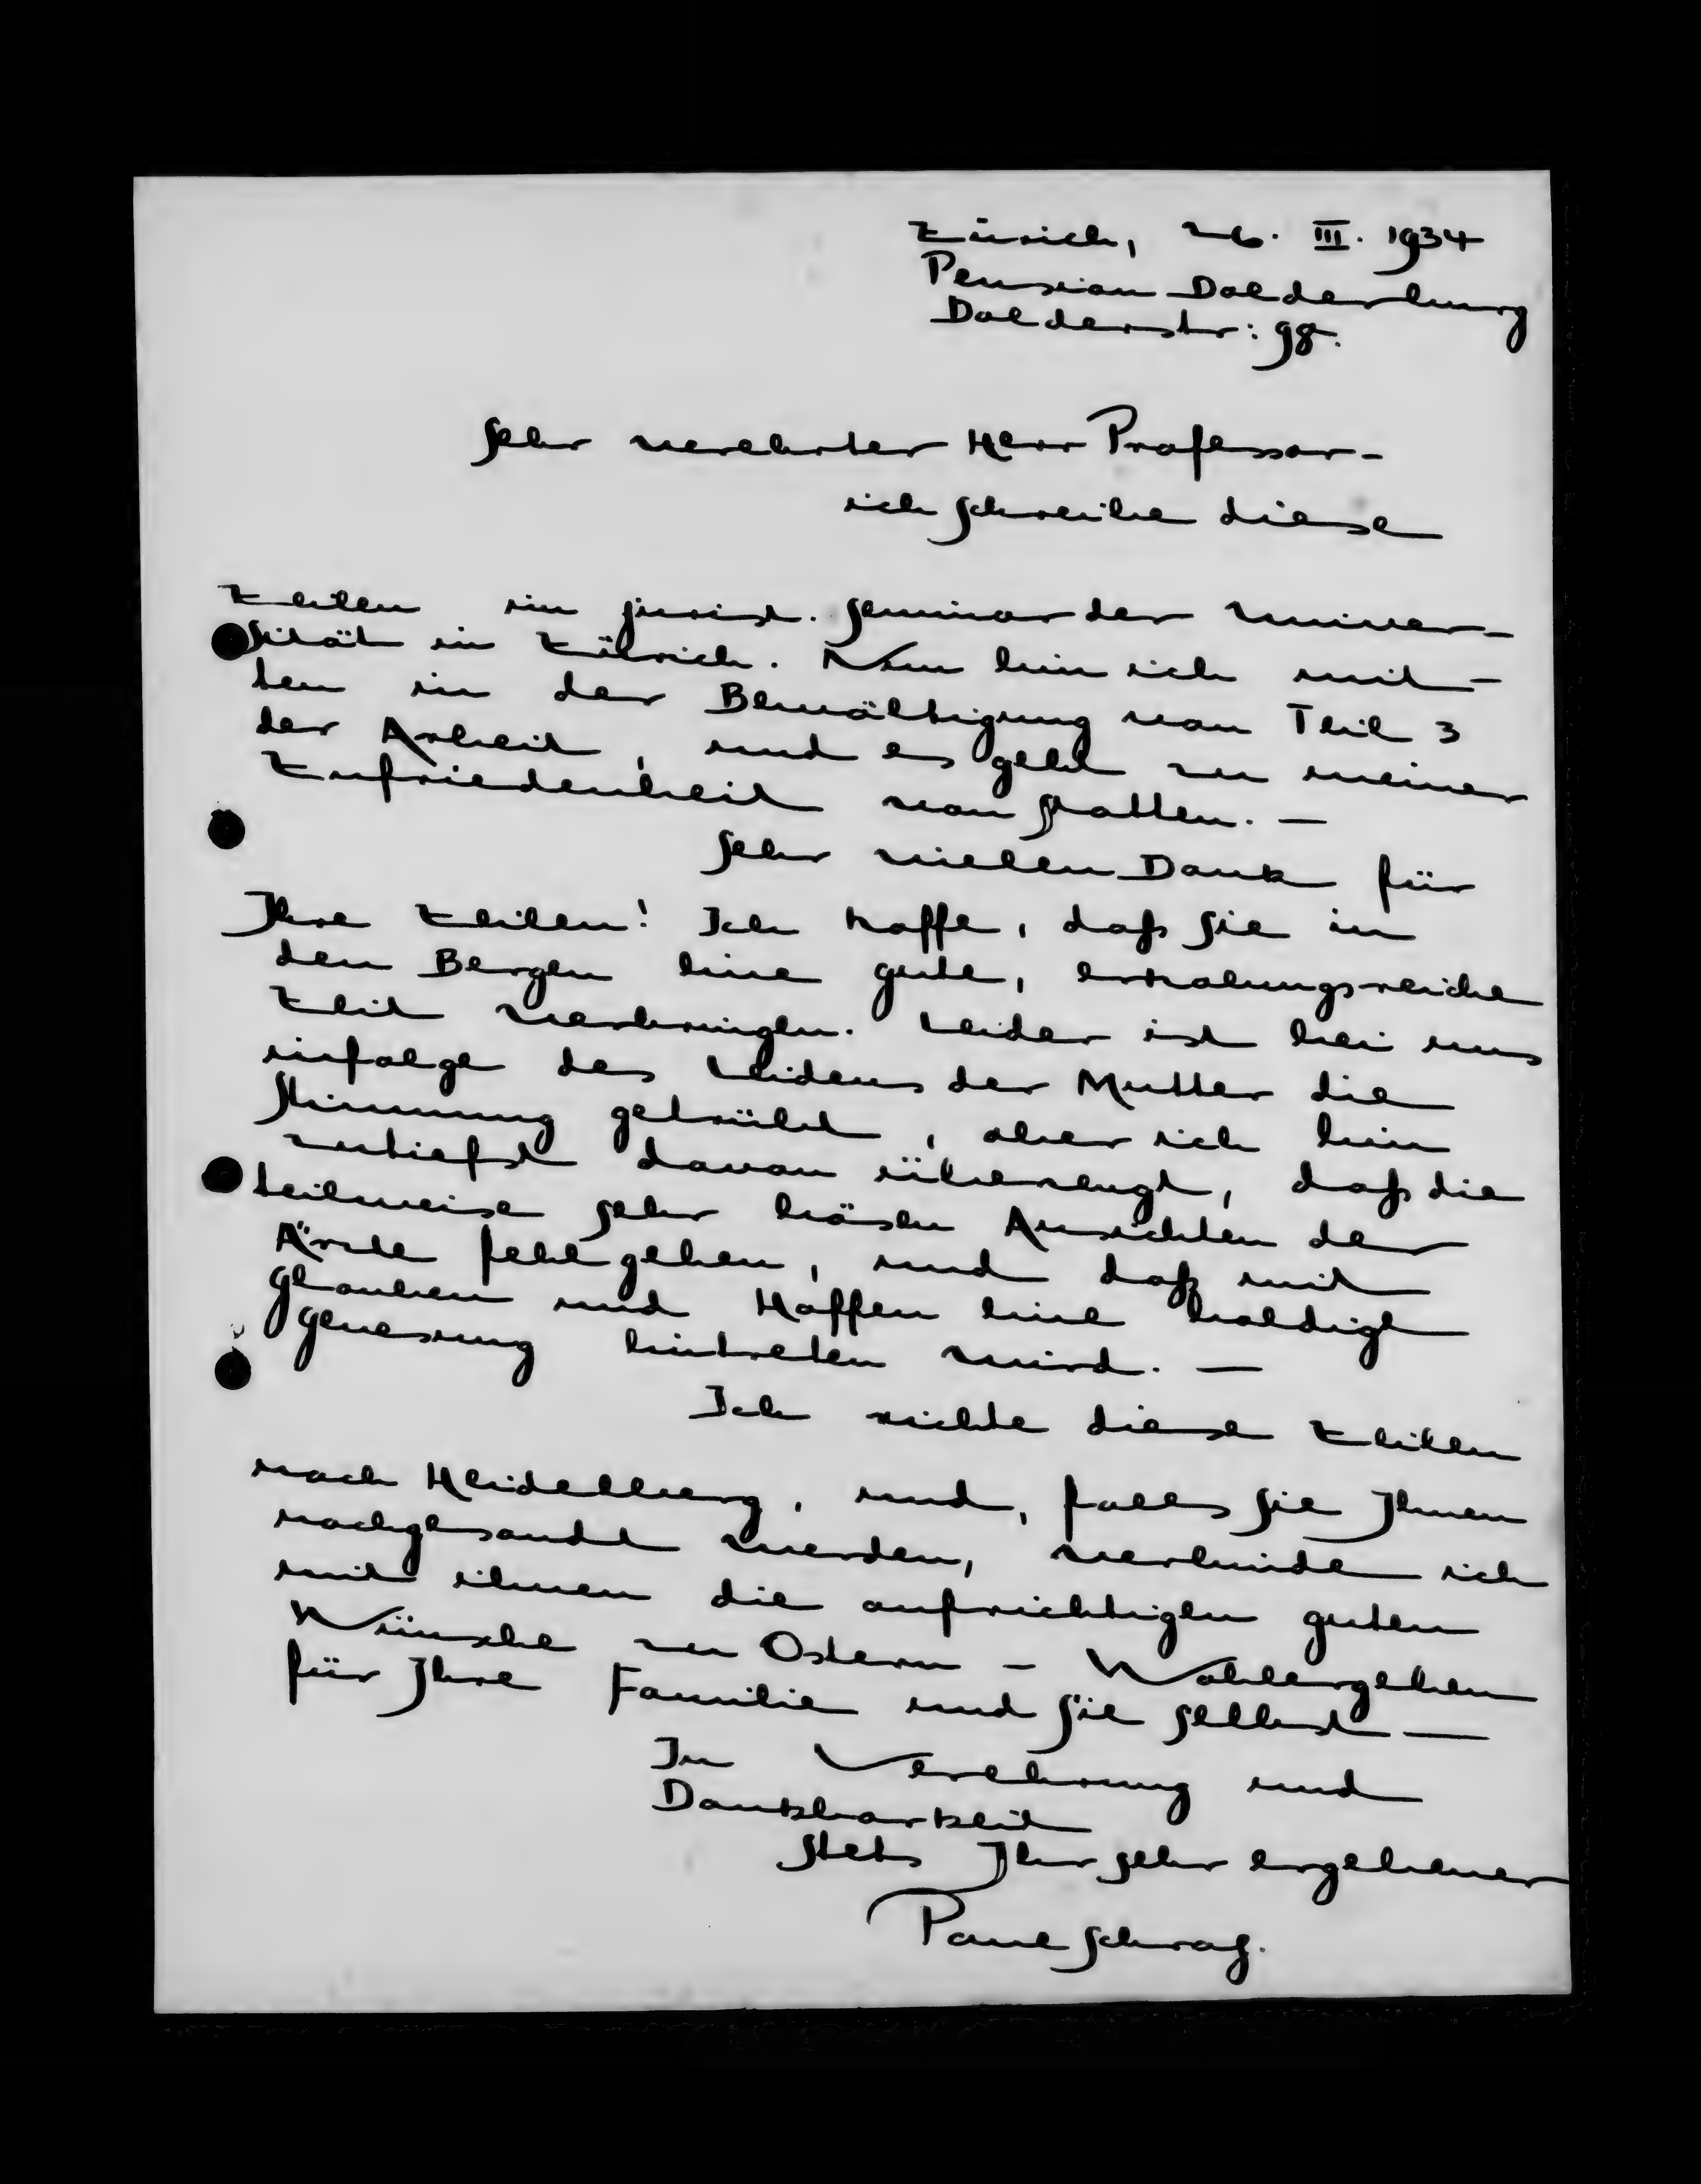 Zürich, 26. III. 1934
Pension Dolderburg
Dolderstr: 98.
Sehr verehrter Herr Professor -
ich schreibe diese
Zeilen im jurist. Seminar der Univer-
sität in Zürich. Nun bin ich mit-
ten in der Bewältigung von Teil 3
der Arbeit, und es geht zu meiner
Zufriedenheit von statten. —
Sehr vielen Dank für
Ihre Zeilen! Ich hoffe, daß Sie in
den Bergen eine gute, erholungsreiche
Zeit verbringen. Leider ist bei uns
infolge des Leidens der Mutter die
Stimmung getrübt, aber ich bin
zutiefst davon überzeugt, daß die
teilweise sehr bösen Ansichten der
Ärzte fehlgehen, und daß mit
Glauben und Hoffen eine baldige
Genesung eintreten wird. —
Ich richte diese Zeilen
nach Heidelberg, und, falls sie Ihnen
nachgesandt werden, verbinde ich
mit ihnen die aufrichtigen guten
Wünsche zu Ostern - Wohlergehen
für Ihre Familie und Sie selbst —
In Verehrung und
Dankbarkeit
stets Ihr sehr ergebener
Paul Schrag.